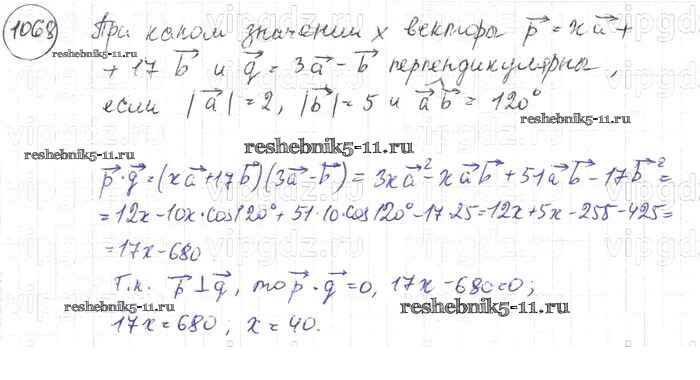 1068 При каком значении x векторы p⃗ = xa⃗ +
+ 17 b⃗ и q⃗ = 3a⃗ - b⃗ перпендикулярны,
если |a⃗| = 2, |b⃗| = 5 и a⃗b⃗ = 120°
reshebnik5-11.ru
reshebnik5-11.ru
reshebnik5-11.ru
p⃗·q⃗ = (xa⃗+17b⃗)(3a⃗-b⃗) = 3xa⃗² - xa⃗b⃗ + 51a⃗b⃗ - 17b⃗² =
= 12x - 10x·cos120° + 51·10·cos120° - 17·25 = 12x + 5x - 255 - 425 =
= 17x - 680
Т.к. p⃗ ⊥ q⃗, то p⃗·q⃗ = 0, 17x - 680 = 0;
17x = 680; x = 40.
reshebnik5-11.ru
reshebnik5-11.ru